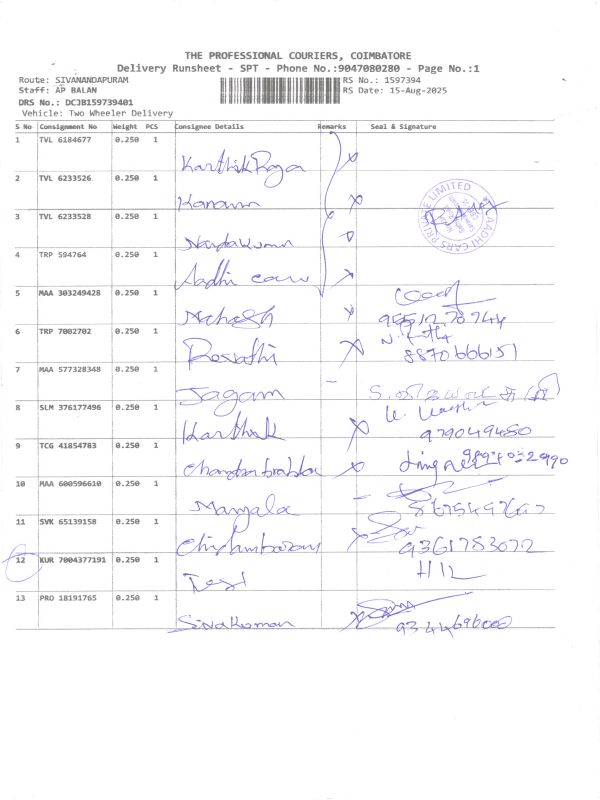 THE PROFESSIONAL COURIERS, COIMBATORE
Delivery Runsheet - SPT - Phone No.:9047080280 - Page No.:1
Route: SIVANANDAPURAM RS No.: 1597394
Staff: AP BALAN RS Date: 15-Aug-2025
DRS No.: DCJB159739401
Vehicle: Two Wheeler Delivery
S No Consignment No Weight PCS Consignee Details Remarks Seal & Signature
1 TVL 6184677 0.250 1
Karthik Raja
2 TVL 6233526 0.250 1
Kannan
3 TVL 6233528 0.250 1
Nandakumar
AADHI CARS PRIVATE LIMITED
4 TRP 594764 0.250 1
Aadhi cars
5 MAA 303249428 0.250 1
Mahesh
6 TRP 7002702 0.250 1
Revathi 8870666151
7 MAA 577328348 0.250 1
Jagam
8 SLM 376177496 0.250 1
Karthik 979049480
9 TCG 41854783 0.250 1
Chandraprabha
10 MAA 600596610 0.250 1
Manjala
11 SVK 65139158 0.250 1
Chidambaram 9361783072
12 KUR 7004377191 0.250 1
H12
13 PRO 18191765 0.250 1
Sivakumar 9344696000